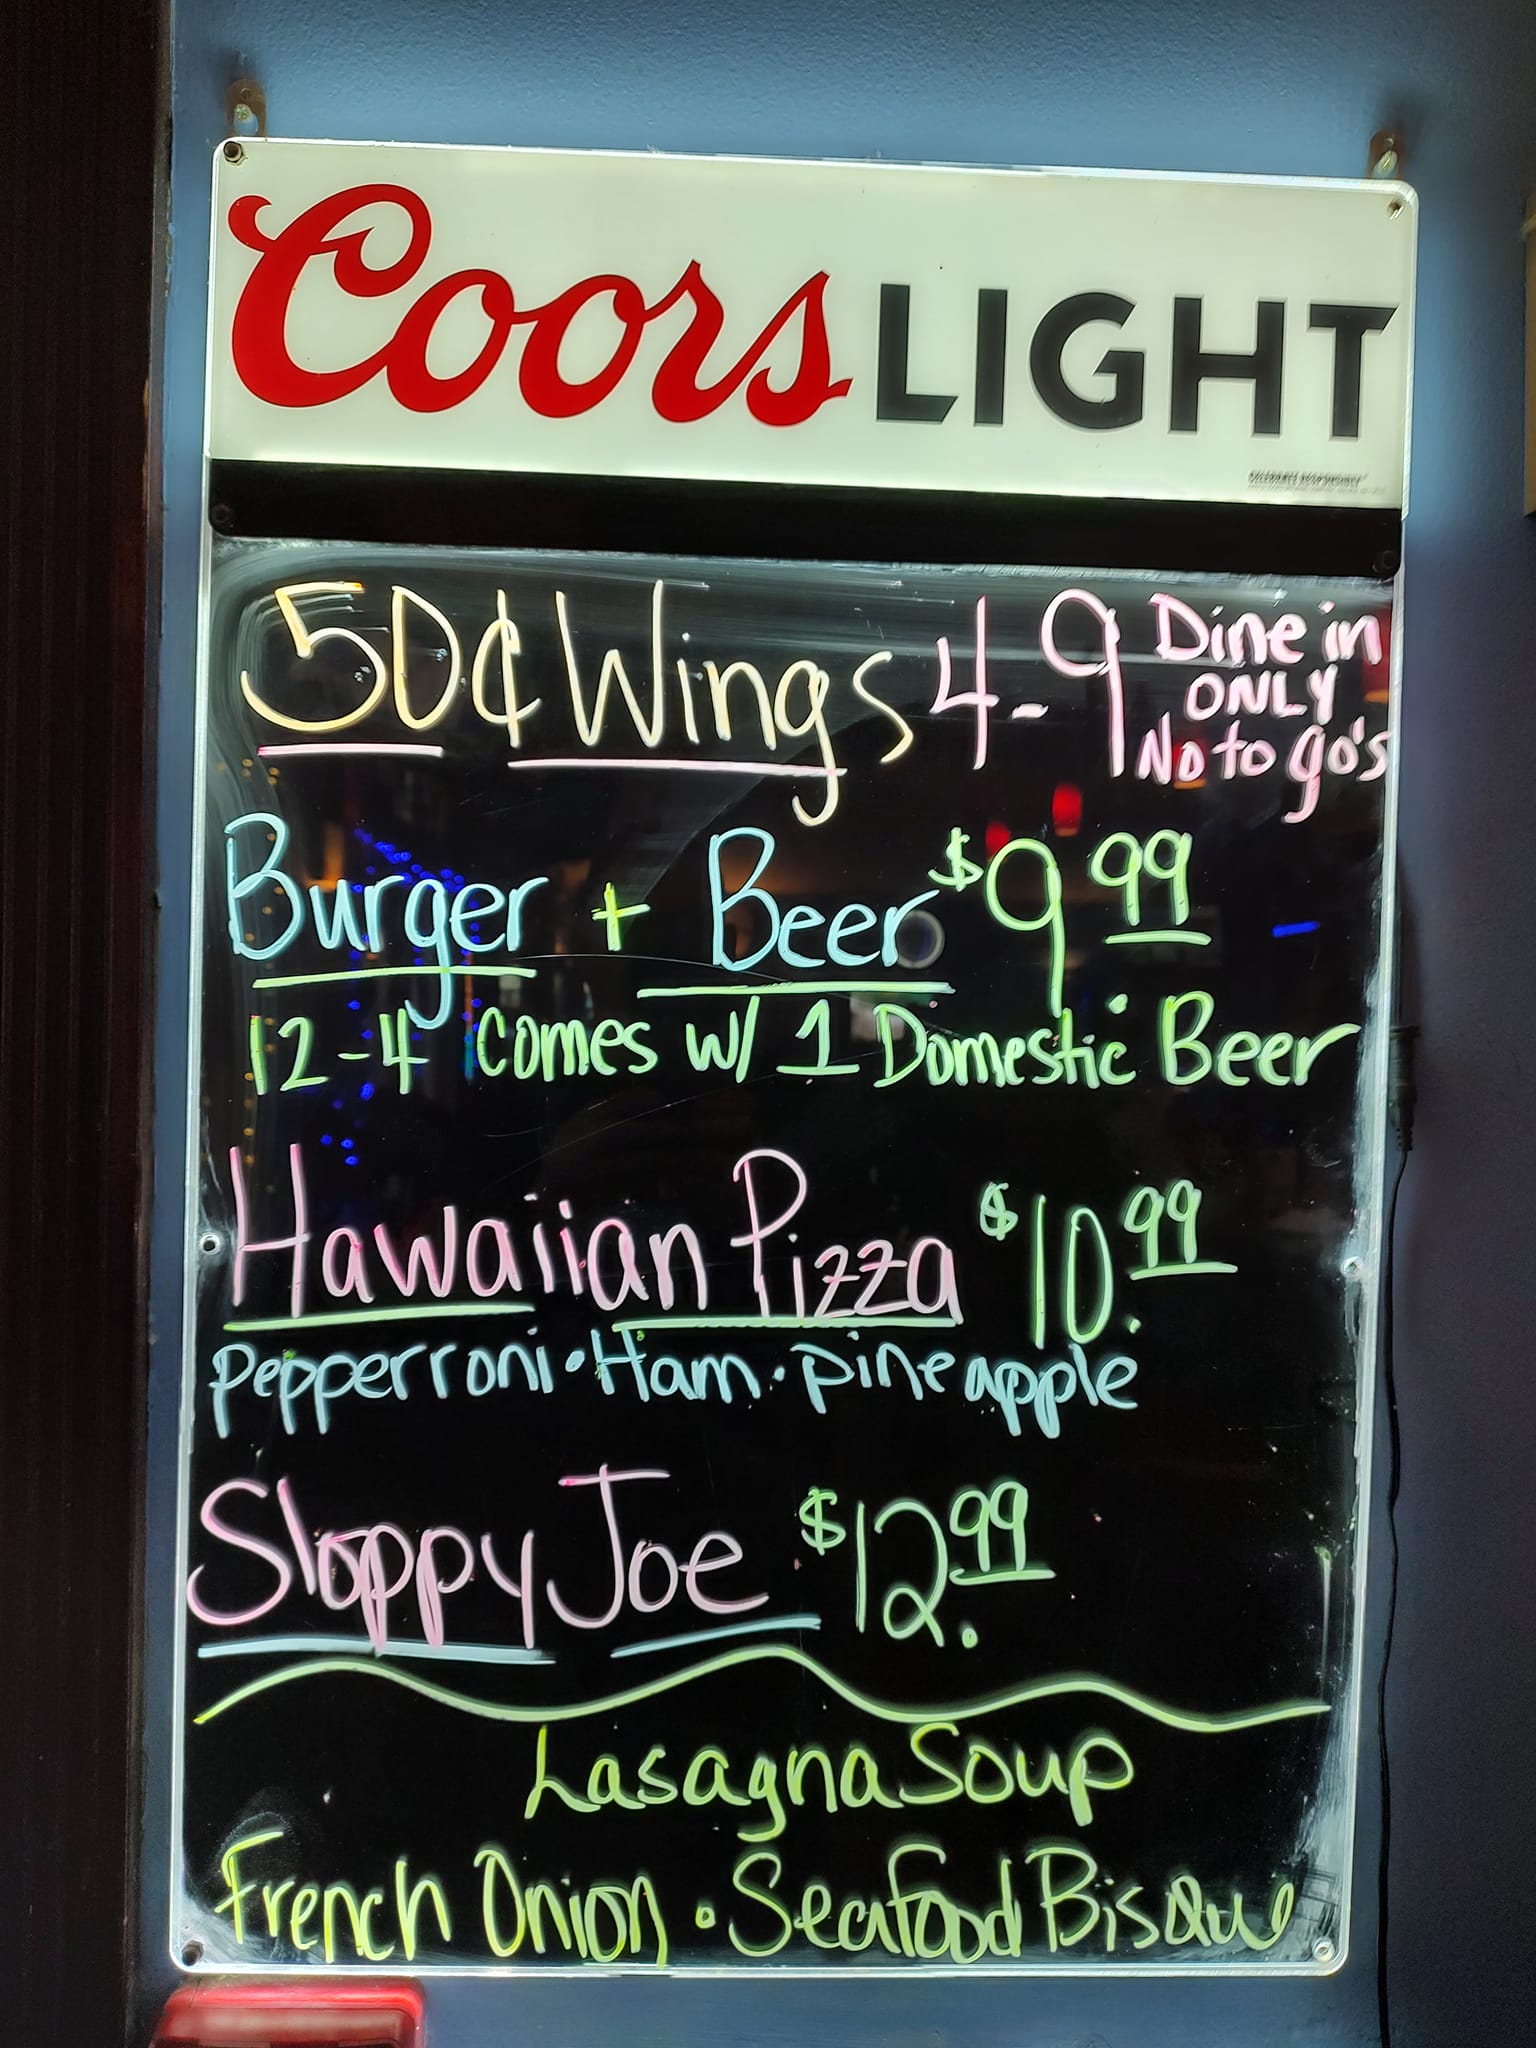 Coors LIGHT
50¢ Wings 4-9 Dine in
ONLY
No to go's
Burger + Beer $9.99
12-4 comes w/ 1 Domestic Beer
Hawaiian Pizza $10.99
Pepperroni • Ham • pineapple
Sloppy Joe $12.99
Lasagna Soup
French Onion • Seafood Bisque